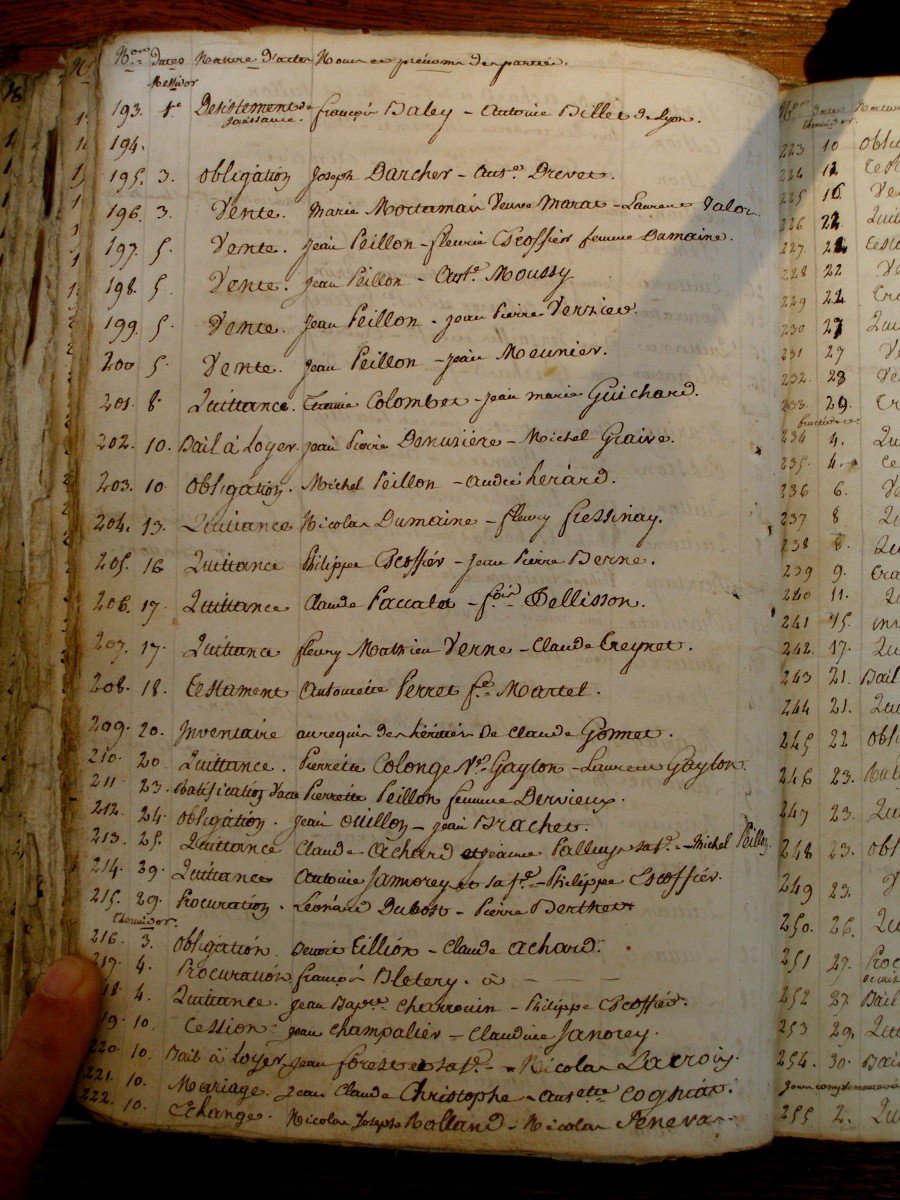 Nos Dates Nature d'actes Noms et prénoms des parties.
Messidor
193. 1er Désistement de jouissance. françois Baley - Antoine Billet de Lyon.
194.
195. 3. Obligation Joseph Darcher - Ante. Drevet.
196. 3. Vente. Marie Veuve Marat - Laurent Valon
197. 5. Vente. Jean Peillon - fleurie Escoffier femme Dumaine.
198. 5. Vente. Jean Peillon - Moussy
199. 5. Vente. Jean Peillon - jean Pierre Verzieu.
200 5. Vente. Jean Peillon - jean Meunier.
201. 8. Quittance. Colombet - jean marie Guichard.
202. 10. Bail à Loyer jean Pierre Denuziére - Michel Graive.
203. 10. Obligation. Michel Peillon - andré herard.
204. 13. Quittance Nicolas Dumaine - fleury fressinay.
205. 16 Quittance Philippe Escoffiér - Jean Pierre Berne.
206. 17. Quittance Claude Paccalet - fois. Pellisson.
207. 17. Quittance fleury Mathieu Verne - Claude Treynet.
208. 18. Testament Antoinette Perret fe. Martel.
209. 20. Inventaire au requis des héritiers De Claude Gonnet.
210. 20. Quittance. Pierrette Colonge Ve. Gayton - Laurent Gayton.
211. 23. Ratification Pierrette Peillon femme Dervieux.
212. 24. Obligation. jean Ouillon - jean Brachet.
213. 25. Quittance Claude Achard et jeanne Palluy sa fe. - Michel Peillon
214. 29. Quittance Antoine Janorey et sa fe. - Philippe Escoffiér.
215. 29. Procuration. Leonard Dubost - Pierre Berthet
Thermidor.
216. 3. Obligation. Benoit Tillion - Claude achard.
217. 4. Procuration françois Bletery. à — — —
18. 4. Quittance. Jean Bapte. Charrouin - Philippe Escoffiér.
19. 10. Cession. jean Champalier - Claudine Janorey.
220. 10. Bail à Loyer jean forest et sa fe. - Nicolas Lacroix.
221. 10. Mariage. Jean Claude Christophe - Ansette Coghiat.
222. 10. Echange. Nicolas Joseph Rolland - Nicolas Peneva
Nos Dates Nature
Thermidor.
223 10 obli
224 12 Test
225 16 Ve
226 22. Quit
227. 22 Test
228 22 Ve
229 22 Tra
230 27 Qui
231 27 Ve
232. 28 Ve
233. 29. Tr
fructidor.
234 4. Qu
235. 4. Ce
236 6. Ve
237 8 Qu
238 8. Qu
239 9. Tra
240 11. Q
241 15. inv
242. 17. Qu
243 21. Bail
244 21. Qui
245 22 Obl
246 23. Rat
247 23. Qu
248 23. Obl
249 23. V
250. 26. Qu
251 27. Proc
252 27. Bail
253 29. Qui
254. 30. Bail
Jours complementaires
255 2. Qu